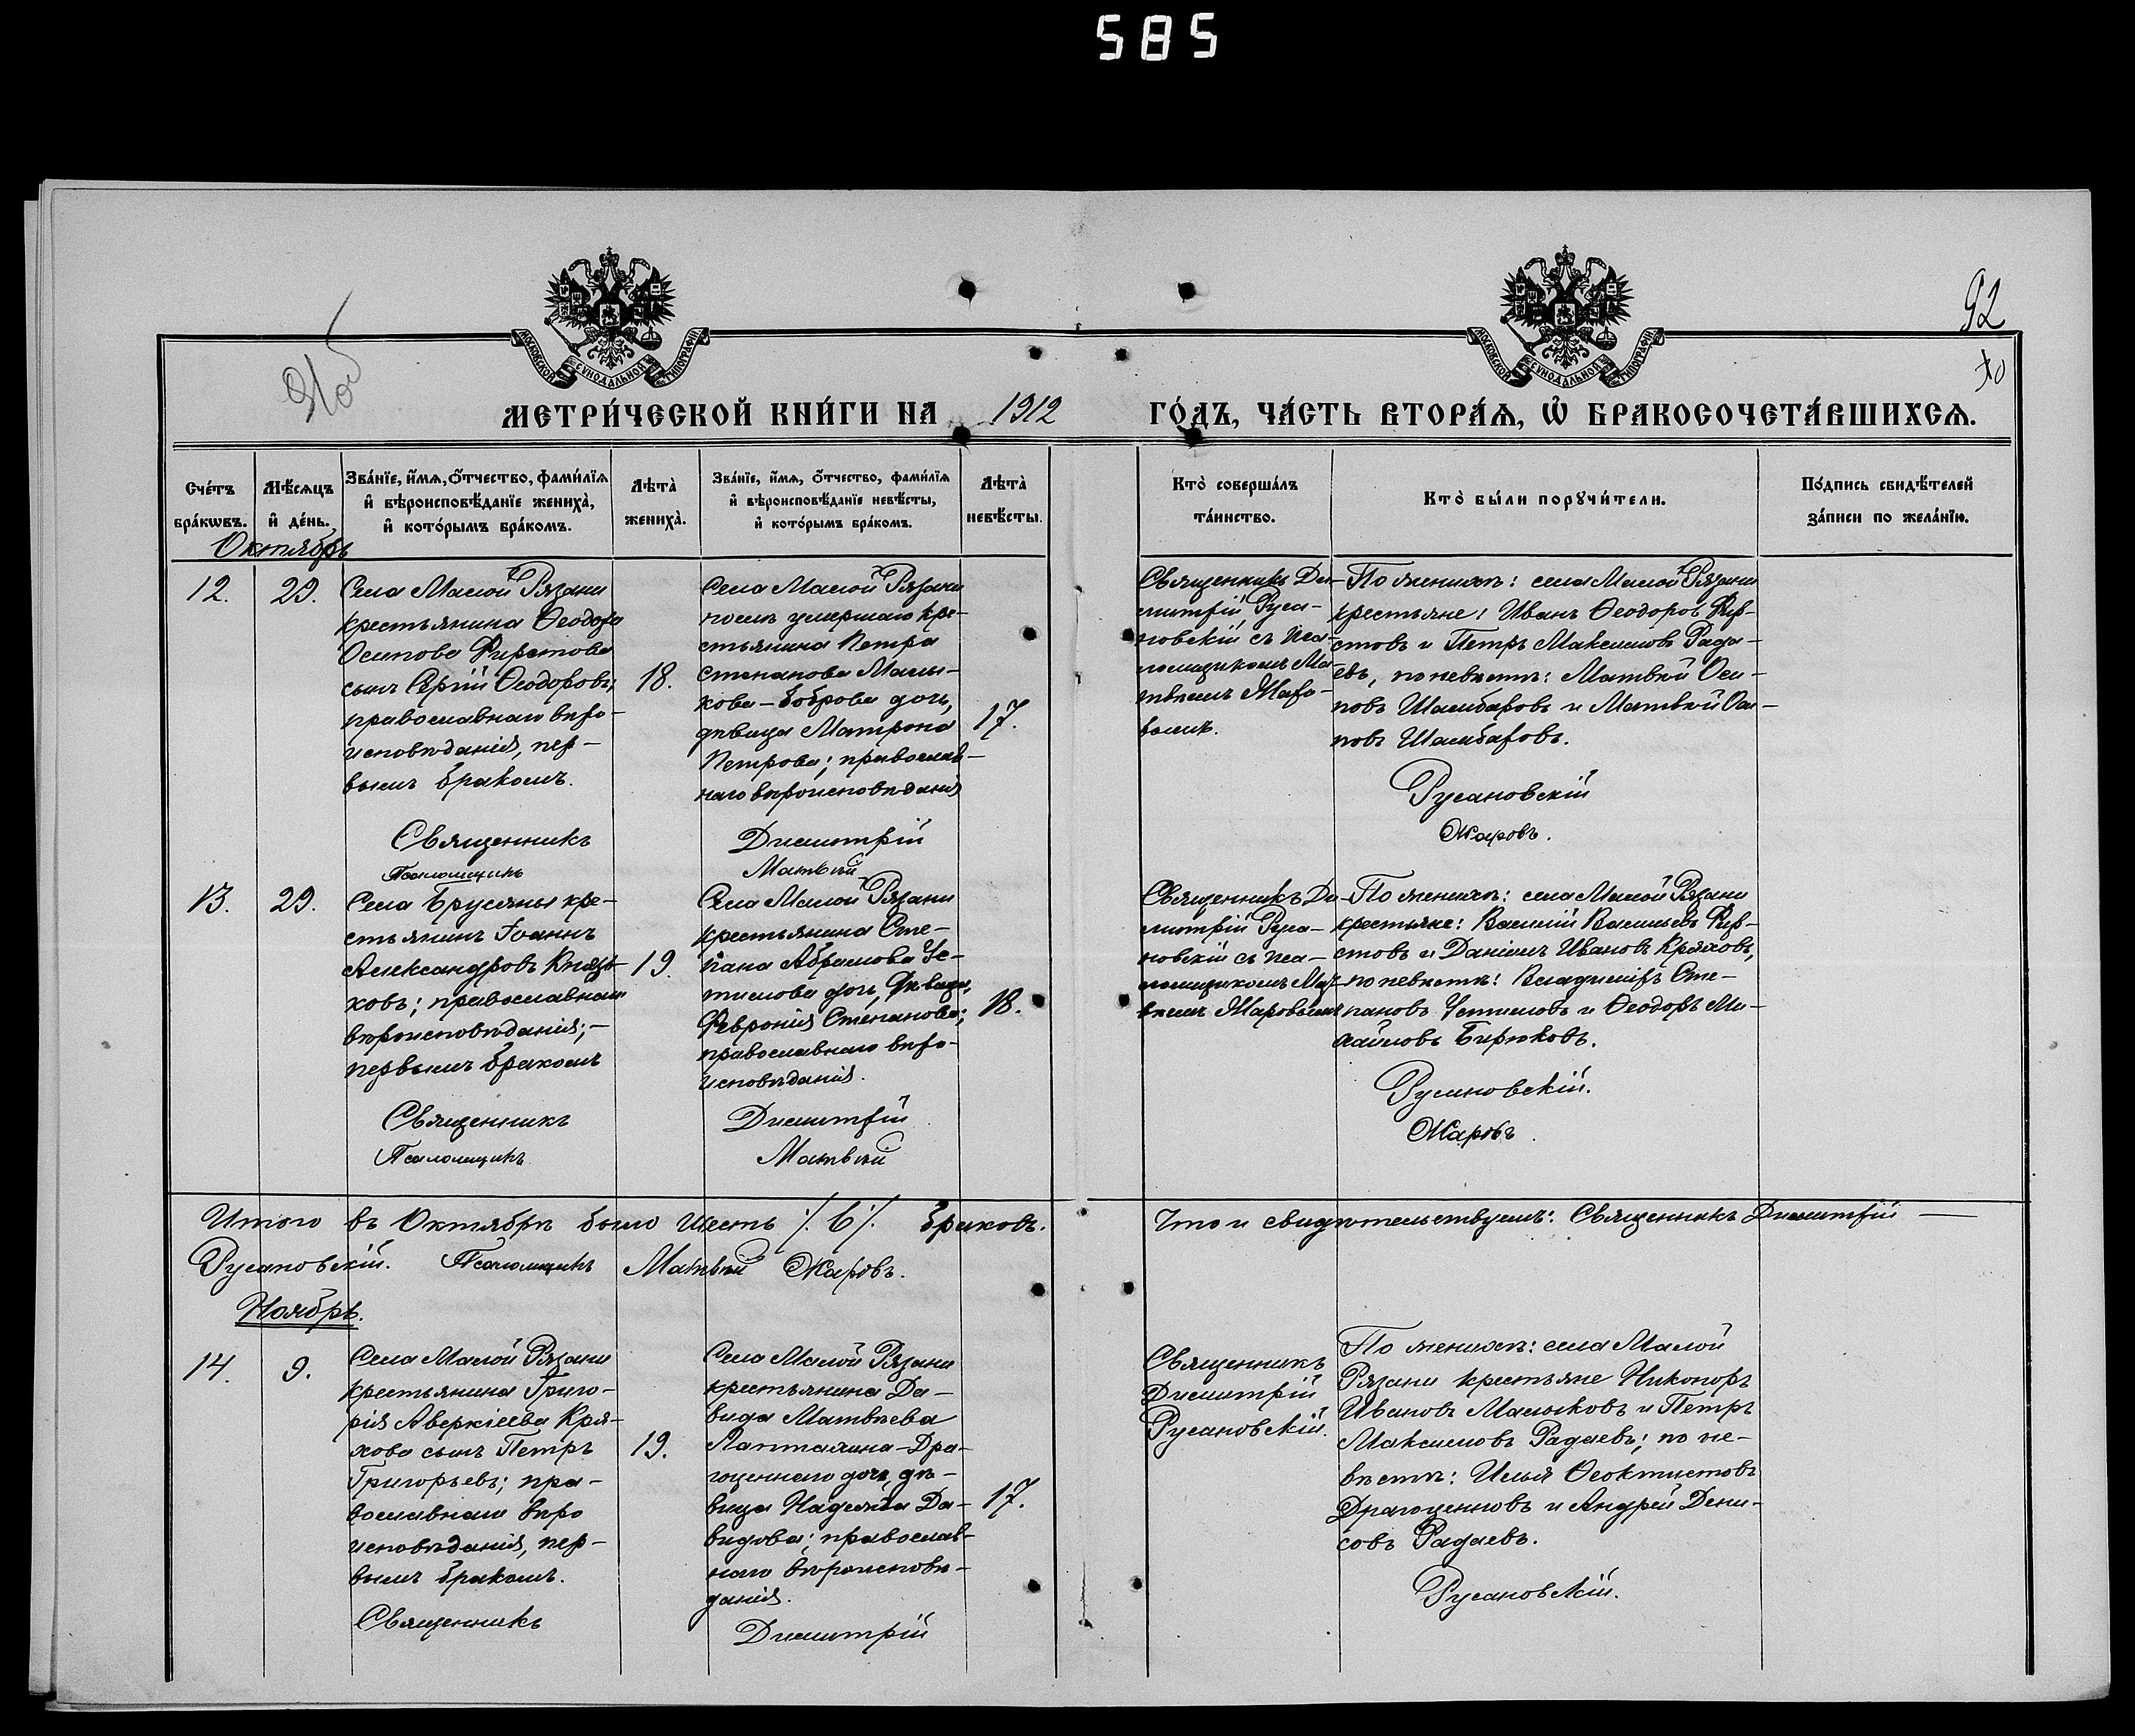 585
МОСКОВСКОЙ СѴНОДАЛЬНОЙ ТИПОГРАФІИ
МОСКОВСКОЙ СѴНОДАЛЬНОЙ ТИПОГРАФІИ
92
МЕТРИ́ЧЕСКОЙ КНИ́ГИ НА 1912 ГО́ДЪ, ЧА́СТЬ ВТОРА́Ѧ, Ѡ҆ БРАКОСОЧЕТА́ВШИХСѦ.
Сче́тъ
бра́кѡвъ.
Мѣ́сѧцъ
и҆ де́нь.
Зва́нїе, и҆́мѧ, ѻ҆́тчество, фами́лїѧ
и҆ вѣроисповѣ́данїе жениха̀,
и҆ кото́рымъ бра́комъ.
Лѣта̀
жениха̀.
Зва́нїе, и҆́мѧ, ѻ҆́тчество, фами́лїѧ
и҆ вѣроисповѣ́данїе невѣ́сты,
и҆ кото́рымъ бра́комъ.
Лѣта̀
невѣ́сты.
Кто̀ соверша́лъ
та́инство.
Кто̀ бы́ли порꙋчи́тели.
По́дпись свидѣ́телей
за́писи по жела́нїю.
Октябрь
12.
29.
Села Малой Рязани
крестьянина Ѳеодора
Осипова Фирстова
сынъ Сергій Ѳеодоровъ;
православнаго вѣро-
исповѣданія, пер-
вымъ бракомъ.
18.
Села Малой Рязани
послѣ умершаго кре-
стьянина Петра
Степанова Малы-
кова-Боброва дочь,
дѣвица Матрона
Петрова; православ-
наго вѣроисповѣданія
17.
Священникъ Ди-
митрій Руса-
новскій съ пса-
ломщикомъ Ма
твѣемъ Жаро-
вымъ.
По женихѣ: села Малой Рязани
крестьяне: Иванъ Ѳеодоровъ Фир-
стовъ и Петръ Максимовъ Рада-
евъ, по невѣстѣ: Матвѣй Оси-
повъ Шалбаровъ и Матвѣй Оси-
повъ Шалбаровъ.
Священникъ Димитрій Русановскій
Псаломщикъ Матвѣй Жаровъ.
13.
29.
Села Брусяны кре-
стьянинъ Іоаннъ
Александровъ Князь-
ковъ; православнаго
вѣроисповѣданія;-
первымъ бракомъ
19.
Села Малой Рязани
крестьянина Сте-
пана Абрамова Ус-
тимова дочь, дѣвица,
Февронія Степанова;
православнаго вѣро-
исповѣданія.
18.
Священникъ Ди
митрій Руса-
новскій съ пса-
ломщикомъ Мат-
вѣемъ Жаровымъ
По женихѣ: села Малой Рязани
крестьяне: Василій Васильевъ Фир-
стовъ и Даніилъ Ивановъ Кряховъ,
по невѣстѣ: Владиміръ Сте-
пановъ Устимовъ и Ѳеодоръ Ми-
хайловъ Бирюковъ.
Священникъ Димитрій Русановскій.
Псаломщикъ Матвѣй Жаровъ.
Итого въ Октябрѣ было шесть /.6/. браковъ. Что и свидѣтельствуемъ: Священникъ Димитрій —
Русановскій. Псаломщикъ Матвѣй Жаровъ.
Ноябрь.
14.
9.
Села Малой Рязани
крестьянина Григо-
рія Аверкіева Кря-
хова сынъ Петръ
Григорьевъ; пра-
вославнаго вѣро
исповѣданія, пер-
вымъ бракомъ.
19.
Села Малой Рязани
крестьянина Да-
вида Матвѣева
Лапталина-Дра-
гоценнаго дочь, дѣ-
вица Надежда Да-
видова; православ-
наго вѣроисповѣ-
данія.
17.
Священникъ
Димитрій
Русановскій.
По женихѣ: села Малой
Рязани крестьяне Никоноръ
Ивановъ Малыковъ и Петръ
Максимовъ Радаевъ; по не-
вѣстѣ: Илья Ѳеоктистовъ
Драгоценновъ и Андрей Дени-
совъ Радаевъ.
Священникъ Димитрій Русановскій.